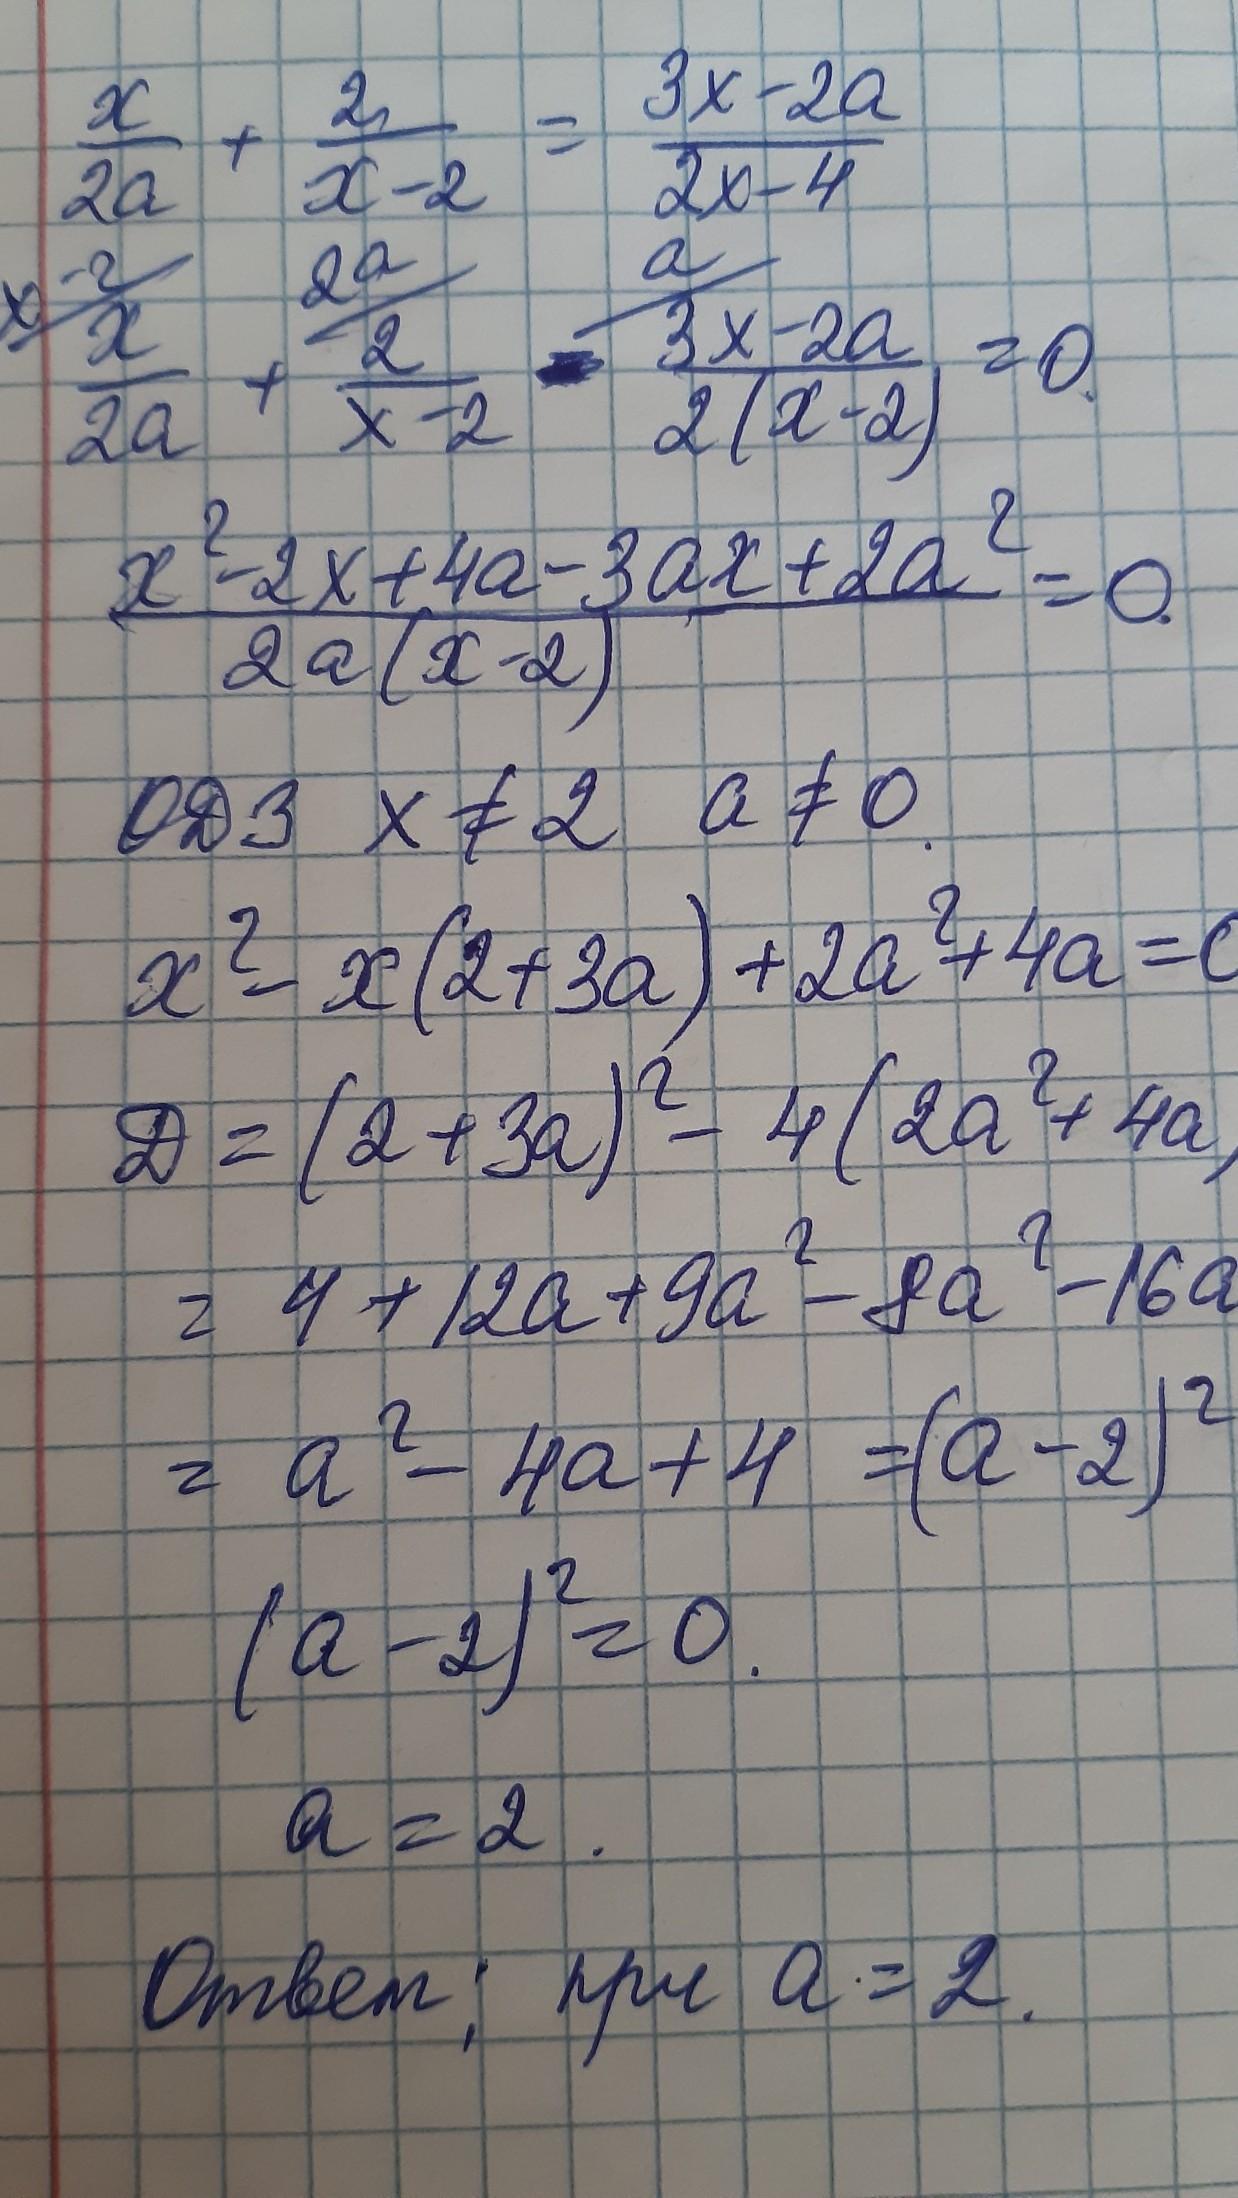 x/2a + 2/(x-2) = (3x-2a)/(2x-4)
x-2 2a a
x/2a + 2/(x-2) - (3x-2a)/(2(x-2)) = 0.
(x²-2x+4a-3ax+2a²)/(2a(x-2)) = 0.
ОДЗ x≠2 a≠0.
x² - x(2+3a) + 2a² + 4a = 0
Д = (2+3a)² - 4(2a² + 4a)
= 4 + 12a + 9a² - 8a² - 16a
= a² - 4a + 4 = (a-2)²
(a-2)² = 0.
a = 2.
Ответ; при a = 2.